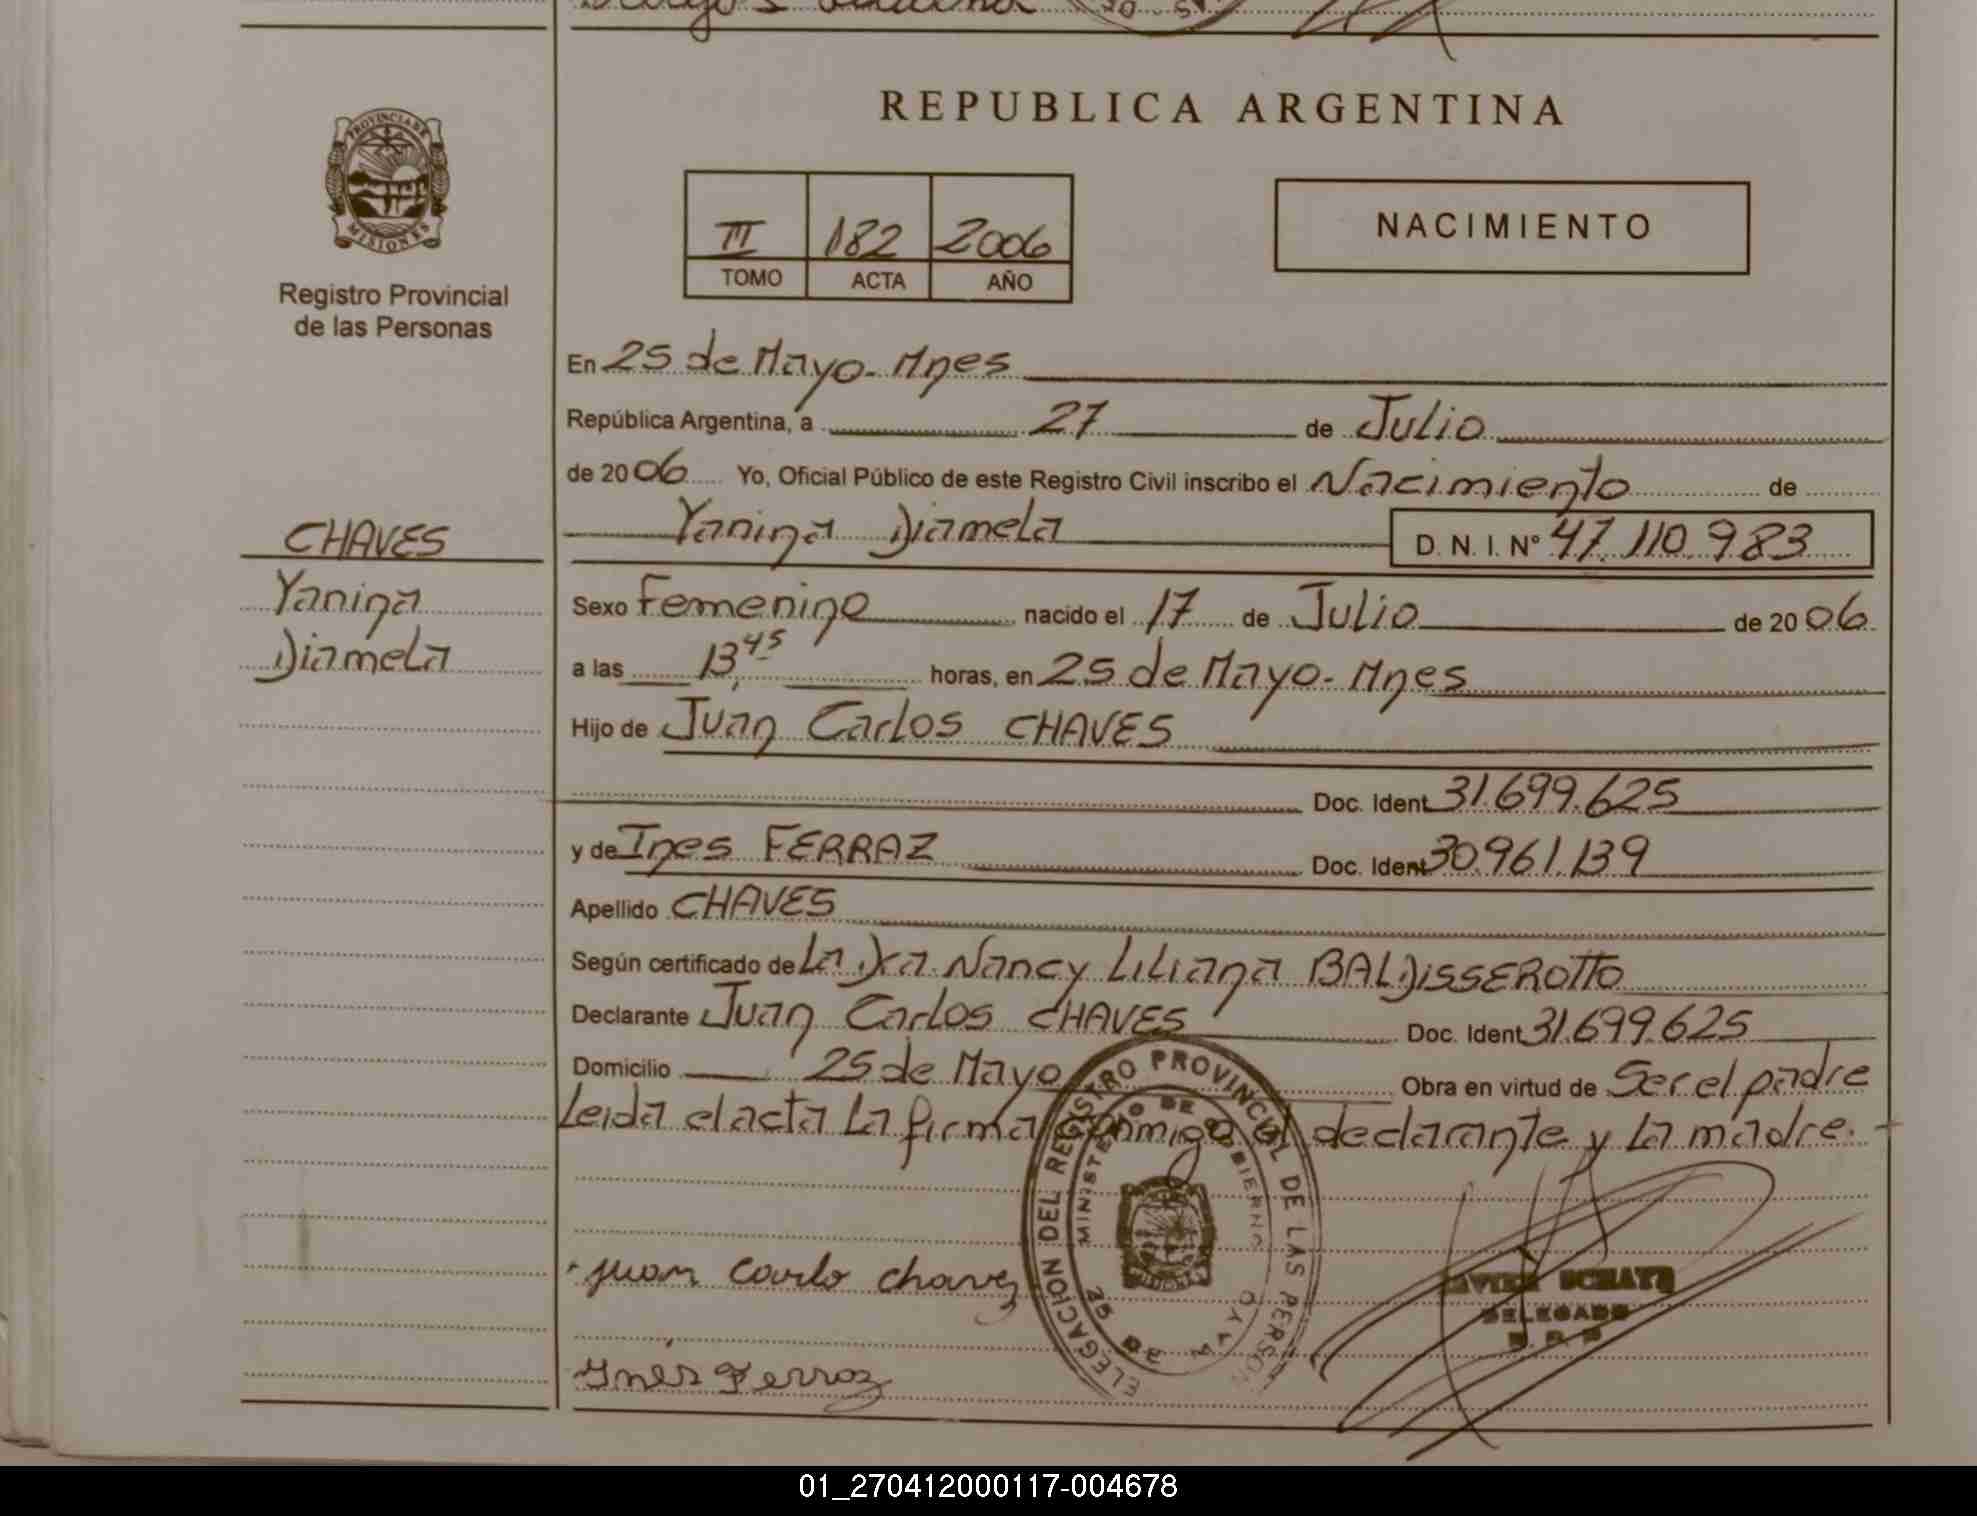 REPUBLICA ARGENTINA
PROVINCIA DE
MISIONES
Registro Provincial
de las Personas
III 182 2006
TOMO ACTA AÑO
NACIMIENTO
En 25 de Mayo - Mnes
República Argentina, a 27 de Julio
de 2006 Yo, Oficial Público de este Registro Civil inscribo el Nacimiento de
Yanina Diamela D. N. I. N° 47.110.983
CHAVES
Yanina
Diamela
Sexo Femenino nacido el 17 de Julio de 2006
a las 13,45 horas, en 25 de Mayo - Mnes
Hijo de Juan Carlos CHAVES
Doc. Ident 31.699.625
y de Ines FERRAZ Doc. Ident 30.961.139
Apellido CHAVES
Según certificado de La Dra. Nancy Liliana BALDISSEROTTO
Declarante Juan Carlos CHAVES Doc. Ident 31.699.625
Domicilio 25 de Mayo Obra en virtud de Ser el padre
Leida el acta la firma conmigo el declarante y la madre.
DELEGACION DEL REGISTRO PROVINCIAL DE LAS PERSONAS
MINISTERIO DE GOBIERNO
25 DE MAYO
juan carlo chavez
Inés Ferraz
DELEGADO
01_270412000117-004678